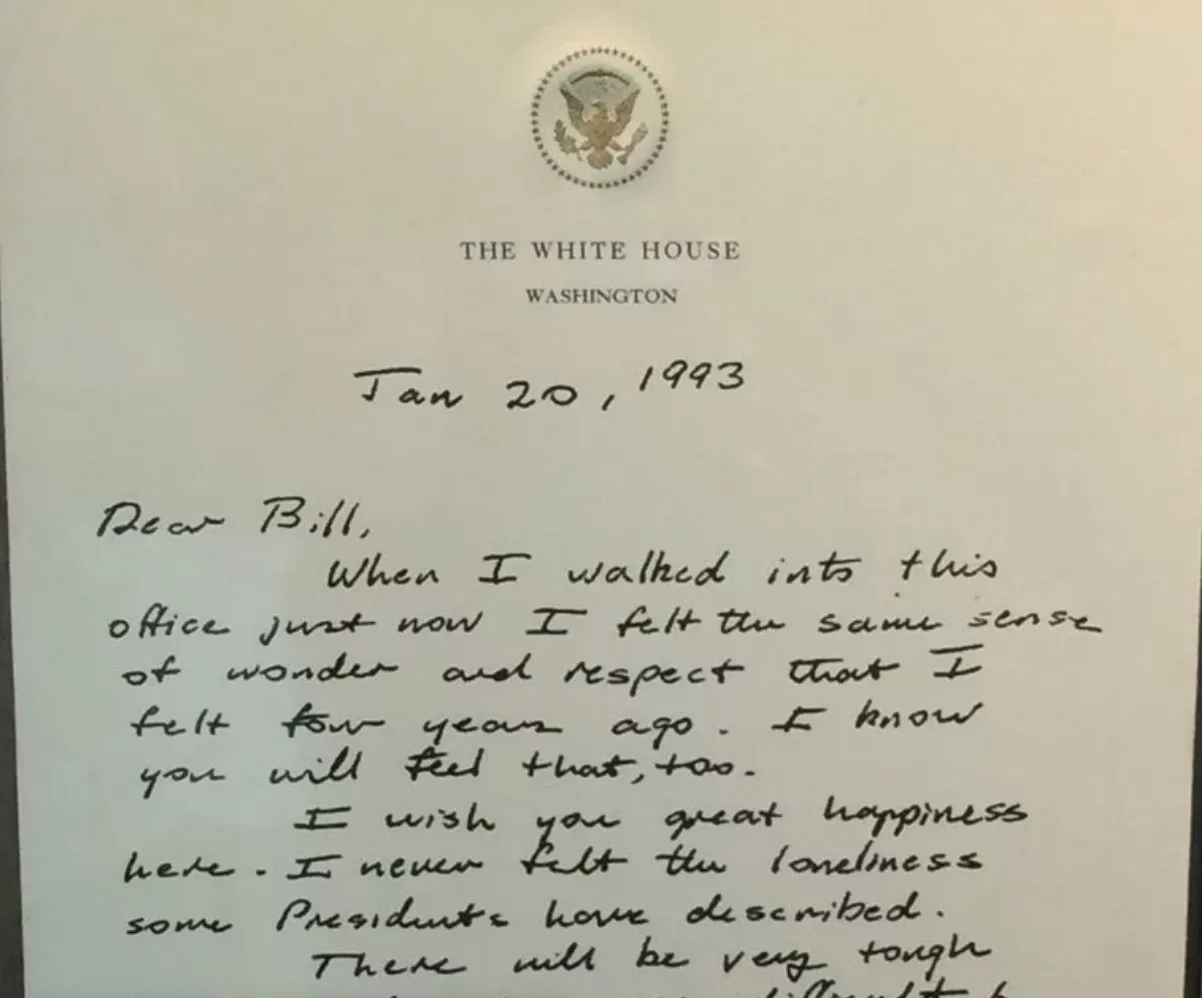 THE WHITE HOUSE
WASHINGTON
Jan 20, 1993
Dear Bill,
When I walked into this
office just now I felt the same sense
of wonder and respect that I
felt four years ago. I know
you will feel that, too.
I wish you great happiness
here. I never felt the loneliness
some Presidents have described.
There will be very tough